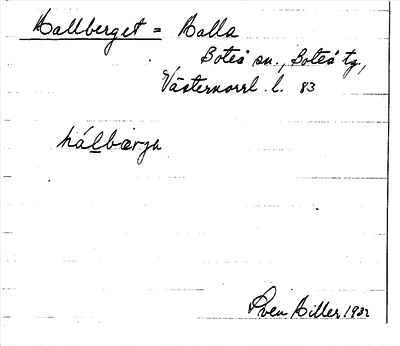 Hallberget = Halla
Boteå sn., Boteå tg,
Västernorrl. l. 83
hálbærja
Sven Hiller 1932